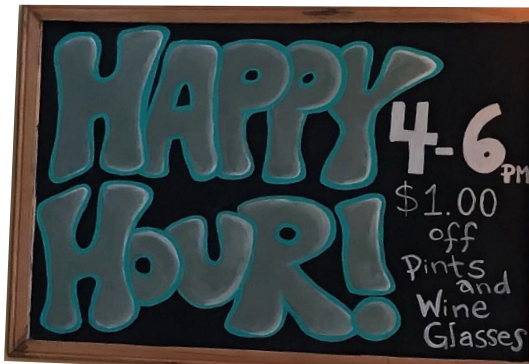 HAPPY
HOUR!
4-6
PM
$1.00
off
Pints
and
Wine
Glasses